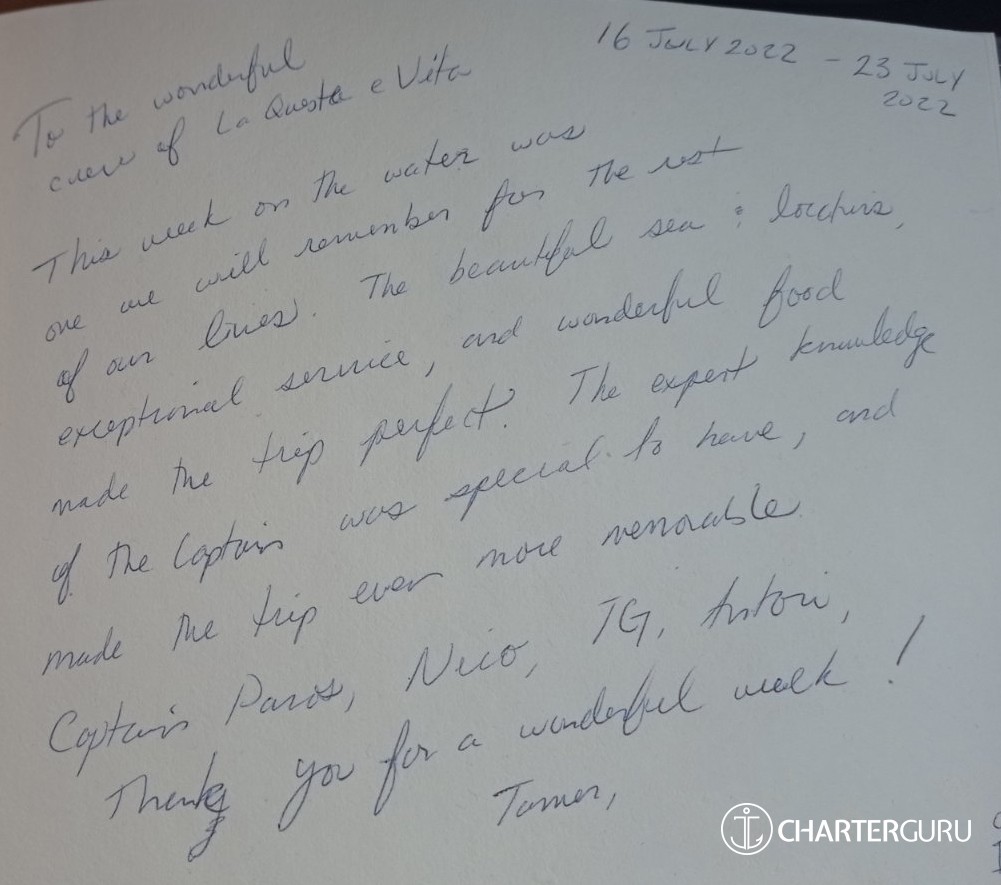 16 JULY 2022 - 23 JULY
2022
To the wonderful
crew of La Questa e Vita
This week on the water was
one we will remember for the rest
of our lives. The beautiful sea &
exceptional service, and wonderful food
made the trip perfect. The expert knowledge
of the Captain was special to have, and
made the trip even more memorable.
Captain Panos, Nico, TG,
Thank you for a wonderful week!
Tamer,
CHARTERGURU